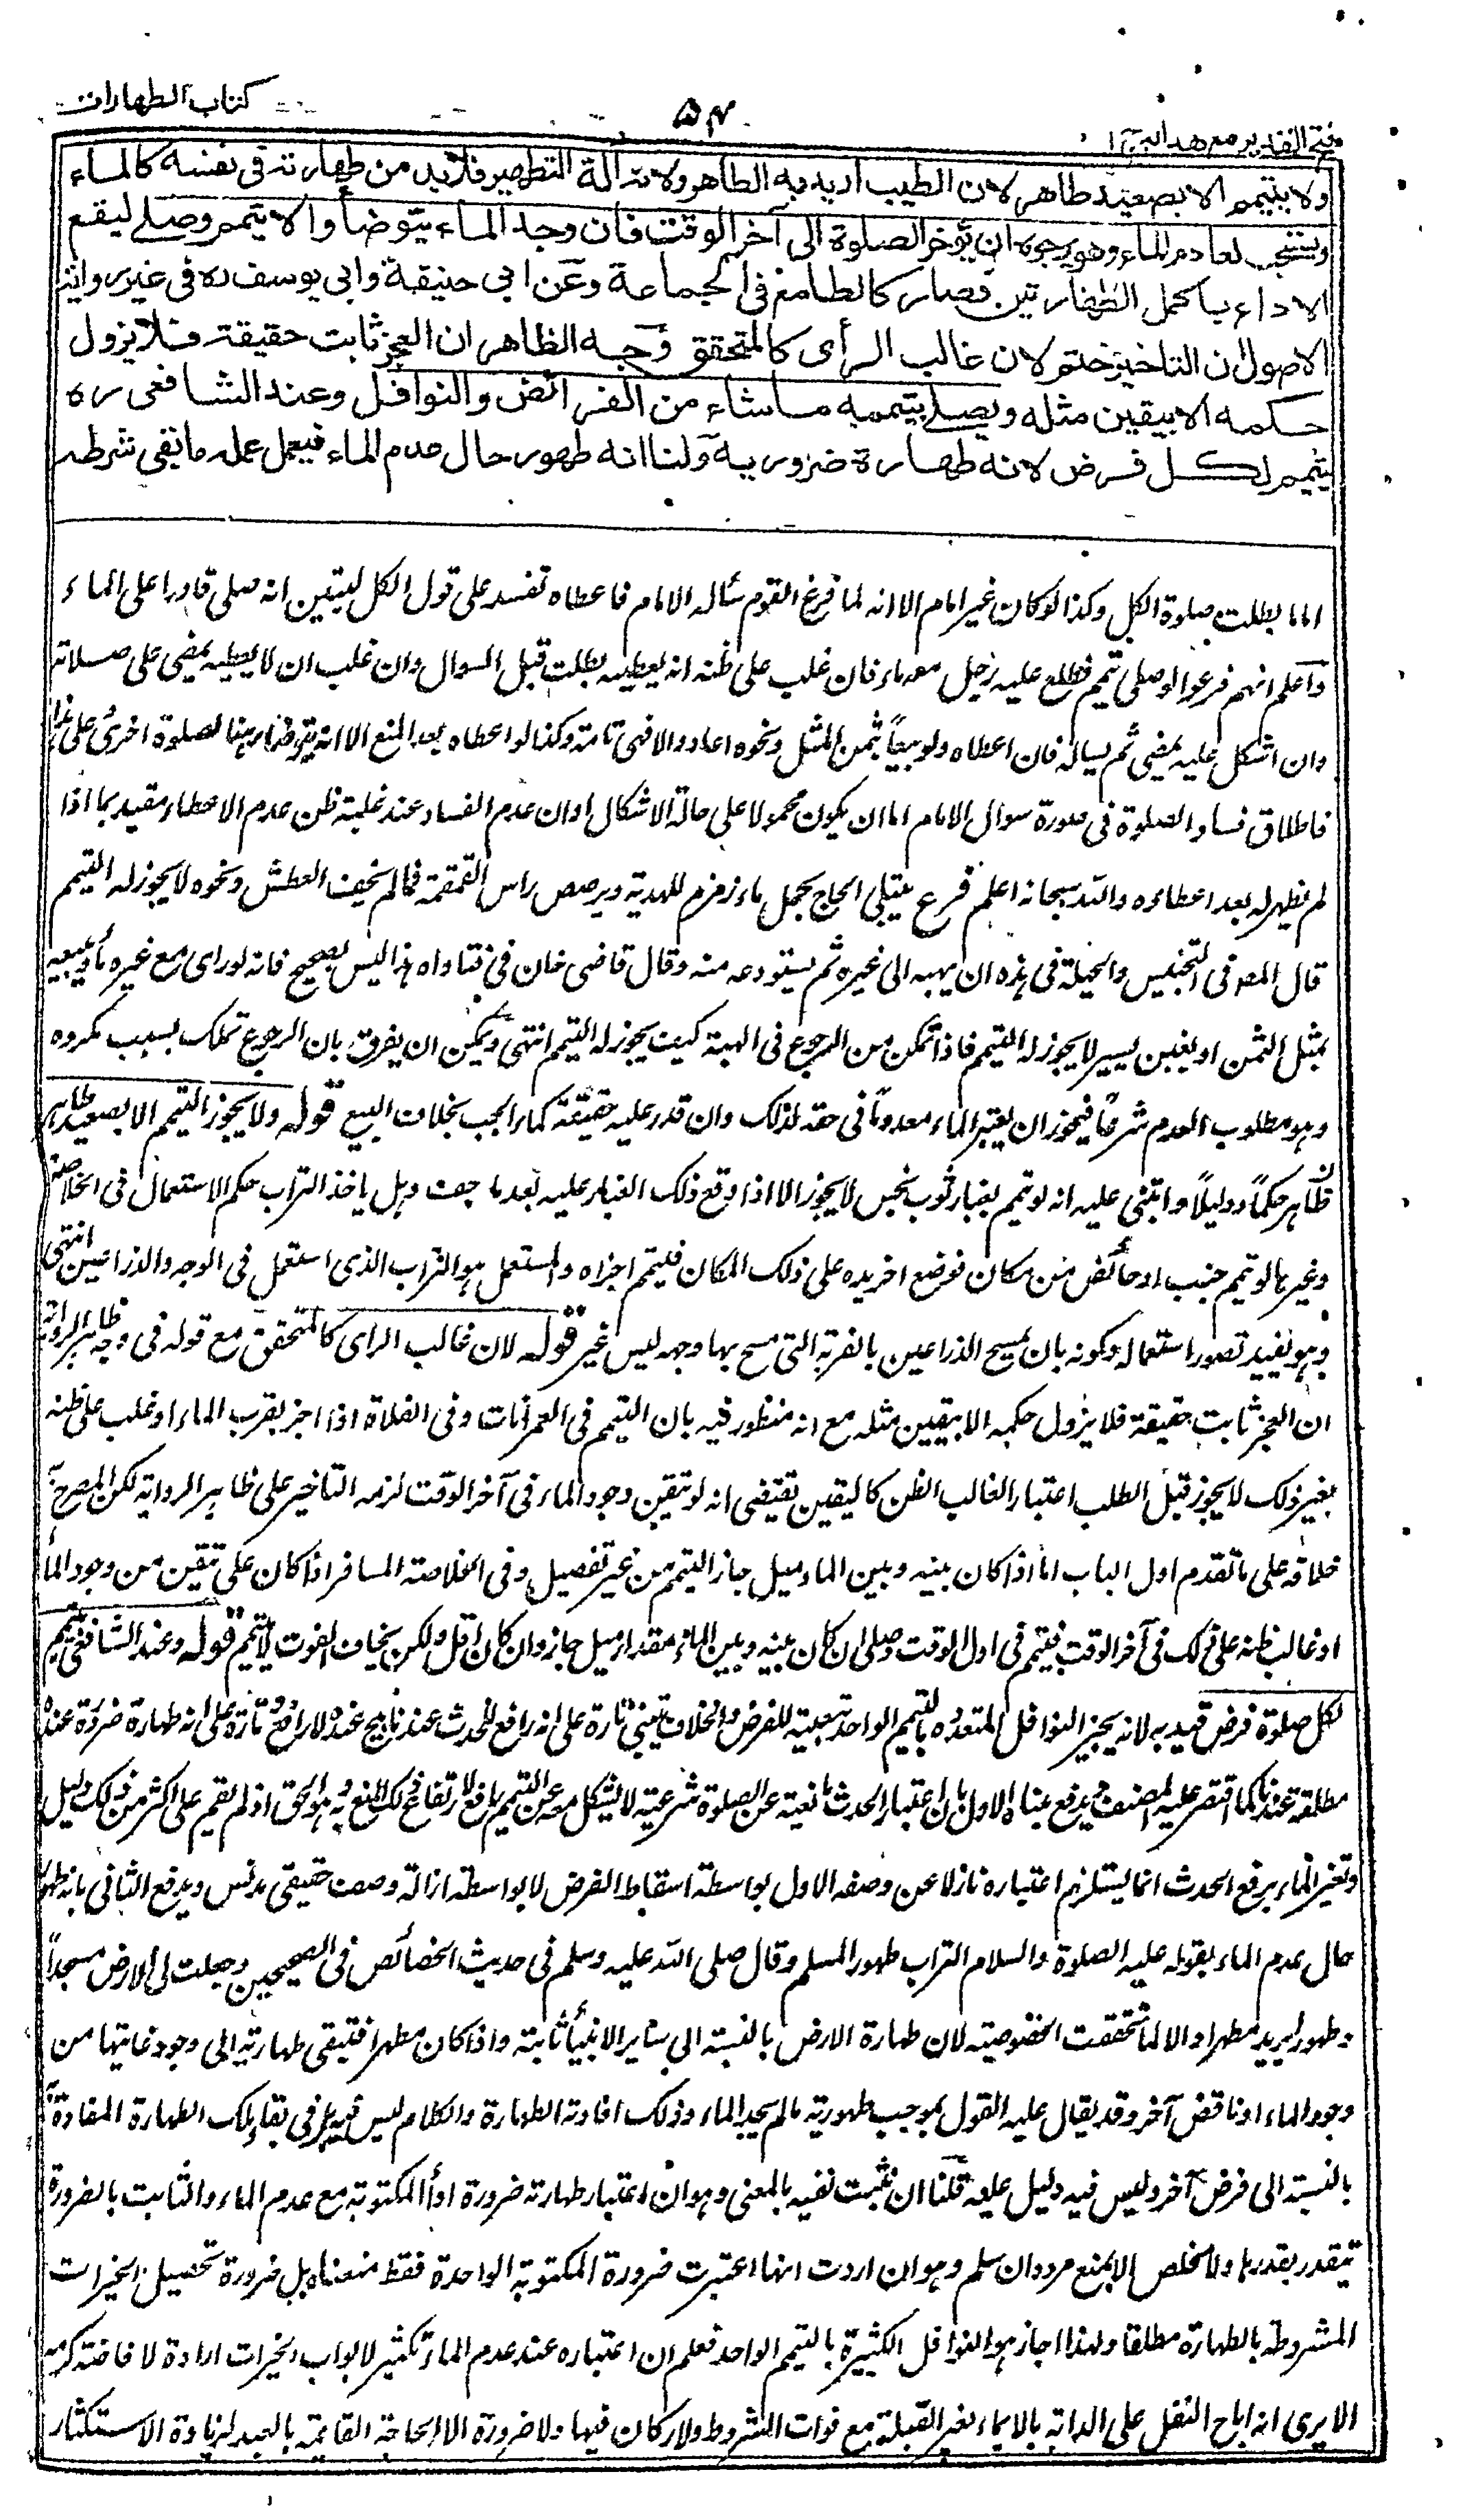 كتاب الطهارات
٥٤
فتح القدير مع هدايه ج ١
ولا يتيمم الا بصعيد طاهر لان الطيب اريد به الطاهر ولانه آلة التطهير فلا بد من طهارته في نفسه كالماء
ويستحب لعادم الماء وهو يرجوه ان يؤخر الصلوة الى آخر الوقت فان وجد الماء يتوضأ والا يتيمم وصلے ليقع
الاداء باكمل الطهارتين فصار كالطامع في الجماعة وعن ابي حنيفة وابي يوسف ره في غير رواية
الاصول ان التاخير حتم لان غالب الرأى كالمتحقق وجه الظاهر ان العجز ثابت حقيقة فلا يزول
حكمه الا بيقين مثله ويصلے بتيممه ماشاء من الفرائض والنوافل وعند الشافعى ره
يتيمم لكل فرض لانه طهارة ضرورية ولنا انه طهور حال عدم الماء فيعمل عمله ما بقى شرطه
اماما بطلت صلوة الكل وكذا لو كان غير امام الا انه لما فرغ القوم سأله الامام فاعطاه تفسد على قول الكل ليتبين انه صلى قادرا على الماء
واعلم انهم فرعوا لو صلى بتيمم فطلع عليه رجل معه ماء فان غلب على ظنه انه يعطيه بطلت قبل السوال وان غلب ان لا يعطيه يمضى على صلاته
وان اشكل عليه يمضى ثم يساله فان اعطاه ولو بيعاً بثمن المثل ونحوه اعاد والا فهى تامة وكذا لو اعطاه بعد المنع الا انه يتوضأ هنا لصلوة اخرى على هذا
فاطلاق فساد الصلوة فى صورة سوال الامام اما ان يكون محمولا على حالة الاشكال او ان عدم الفساد عند غلبة ظن عدم الاعطاء مقيد بما اذا
لم يظهر له بعد اعطاءه والله سبحانه اعلم فرع يبتلى الحاج بحمل ماء زمزم للهدية ويرصص راس القمقمة فما لم يخف العطش ونحوه لا يجوز له التيمم
قال المصـ فى التجنيس والحيلة فى هذه ان يهبه الى غيره ثم يستودعه منه وقال قاضى خان فى فتاواه هذا ليس بصحيح فانه لو راى مع غيره ماء يبيعه
بمثل الثمن او بغبن يسير لا يجوز له التيمم فاذا تمكن من الرجوع فى الهبة كيف يجوز له التيمم انتهى ويمكن ان يفرق بان الرجوع تملك بسبب مكروه
وهو مطلوب العدم شرعاً فيجوز ان يعتبر الماء معدوماً فى حقه لذلك وان قدر عليه حقيقة كماء الجب بخلاف البيع قوله ولا يجوز التيمم الا بصعيد طاهر
ظاهر حكماً ودليلاً وابتنى عليه انه لو تيمم بغبار ثوب نجس لا يجوز الا اذا وقع ذلك الغبار عليه بعد ما جفت وهل ياخذ التراب حكم الاستعمال فى الخلاصة
وغيرها لو تيمم جنب او حائض من مكان فوضع آخر يده على ذلك المكان فتيمم اجزاه والمستعمل هو التراب الذى استعمل فى الوجه والذراعين انتهى
وهو يفيد تصور استعماله وكونه بان يمسح الذراعين بالضربة التى مسح بها وجهه ليس غير قوله لان غالب الراى كالمتحقق مع قوله فى وجه ظاهر الرواية
ان العجز ثابت حقيقة فلا يزول حكمه الا بيقين مثله مع انه منظور فيه بان التيمم فى العمرانات وفى الفلاة اذا اخبر بقرب الماء او غلب على ظنه
بغير ذلك لا يجوز قبل الطلب اعتبارا لغالب الظن كاليقين يقتضى انه لو تيقن وجود الماء فى آخر الوقت لزمه التاخير على ظاهر الرواية لكن المصرح به
خلافه على ما تقدم اول الباب اما اذا كان بينه وبين الماء ميل جاز التيمم من غير تفصيل وفى الخلاصة المسافر اذا كان على تيقن من وجود الماء
او غالب ظنه على ذلك فى آخر الوقت فتيمم فى اول الوقت وصلى ان كان بينه وبين الماء مقدار ميل جاز وان كان اقل ولكن يخاف الفوت لا يتيمم قوله وعند الشافعى يتيمم
لكل صلوة فرض قيد به لانه يجيز النوافل المتعدده بالتيمم الواحد تبعية للفرض والخلاف يبتنى تارة على انه رافع للحدث عندنا مبيح عنده لا رافع وتارة على انه طهارة ضرورة عنده
مطلقة عندنا كما اقتصر عليه المصنف ويدفع مبناه الاول بان اعتبار الحدث مانعية عن الصلوة شرعية لا يشكل معه ان التيمم رافع لارتفاع ذلك المنع به وهو الحق اذ لم يقم على اكثر من ذلك دليل
وتغير الماء برفع الحدث انما يستلزم اعتباره نازلا عن وصفه الاول بواسطة اسقاط الفرض لا بواسطة ازالة وصف حقيقى مدنس ويدفع الثانى بانه طهور
حال عدم الماء بقوله عليه الصلوة والسلام التراب طهور المسلم وقال صلى الله عليه وسلم فى حديث الخصائص فى الصحيحين وجعلت لى الارض مسجداً
وطهورا يريد مطهرا والا لما تحققت الخصوصية لان طهارة الارض بالنسبة الى ساير الانبياء ثابتة واذا كان مطهرا فتبقى طهارته الى وجود غايتها من
وجود الماء او ناقض آخر وقد يقال عليه القول بموجب طهوريته مالم يجد الماء وذلك افادته الطهارة والكلام ليس فيه بل فى بقاء تلك الطهارة المفادة به
بالنسبة الى فرض آخر وليس فيه دليل عليه قلنا ان نثبت نفيه بالمعنى وهو ان اعتبار طهارته ضرورة اداء المكتوبة مع عدم الماء والثابت بالضرورة
يتقدر بقدرها ولا مخلص الا بمنع مردوان سلم وهو ان اردت انها اعتبرت ضرورة المكتوبة الواحدة فقط منعناه بل ضرورة تحصيل الخيرات
المشروطة بالطهارة مطلقا ولهذا اجاز هو النوافل الكثيرة بالتيمم الواحد فعلم ان اعتباره عند عدم الماء تكثير لابواب الخيرات ارادة لافاضة كرمه
الا يرى انه اباح النفل على الدابة بالايماء لغير القبلة مع فوات الشروط والاركان فيها ولا ضرورة الا الحاجة القائمة بالعبد لزيادة الاستكثار